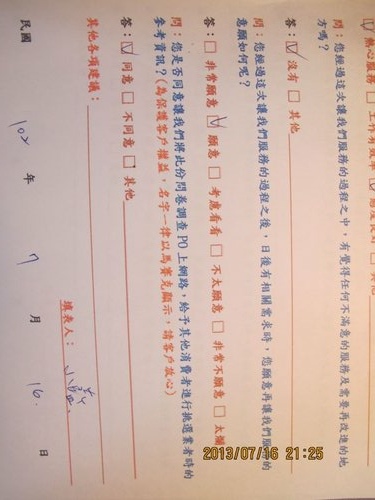 熱心服務 □ 工作有效率 ☑ 態度良好 □ 其他
問：您經過這次讓我們服務的過程之中，有覺得任何不滿意的服務及需要再改進的地
方嗎？
答：☑ 沒有 □ 其他
問：您經過這次讓我們服務的過程之後，日後有相關需求時，您願意再讓我們服務的
意願如何呢？
答：□ 非常願意 ☑ 願意 □ 考慮看看 □ 不太願意 □ 非常不願意 □ 太爛
問：您是否同意讓我們將此份問卷調查PO上網路，給予其他消費者進行挑選業者時的
參考資訊？(為保護客戶權益，名字一律以馬賽克顯示，請客戶放心)
答：☑ 同意 □ 不同意 □ 其他
其他各項建議：
填表人：
民國 102 年 7 月 16 日
2013/07/16 21:25